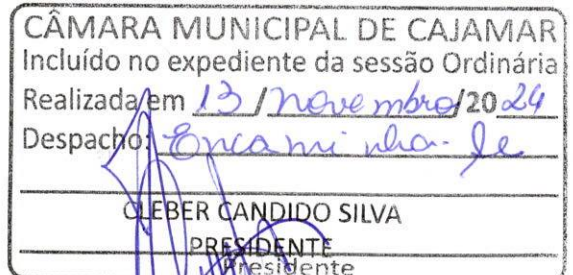 CÂMARA MUNICIPAL DE CAJAMAR
Incluído no expediente da sessão Ordinária
Realizada em 13 / novembro / 20 24
Despacho: Encaminha-se
CLEBER CANDIDO SILVA
PRESIDENTE
Presidente